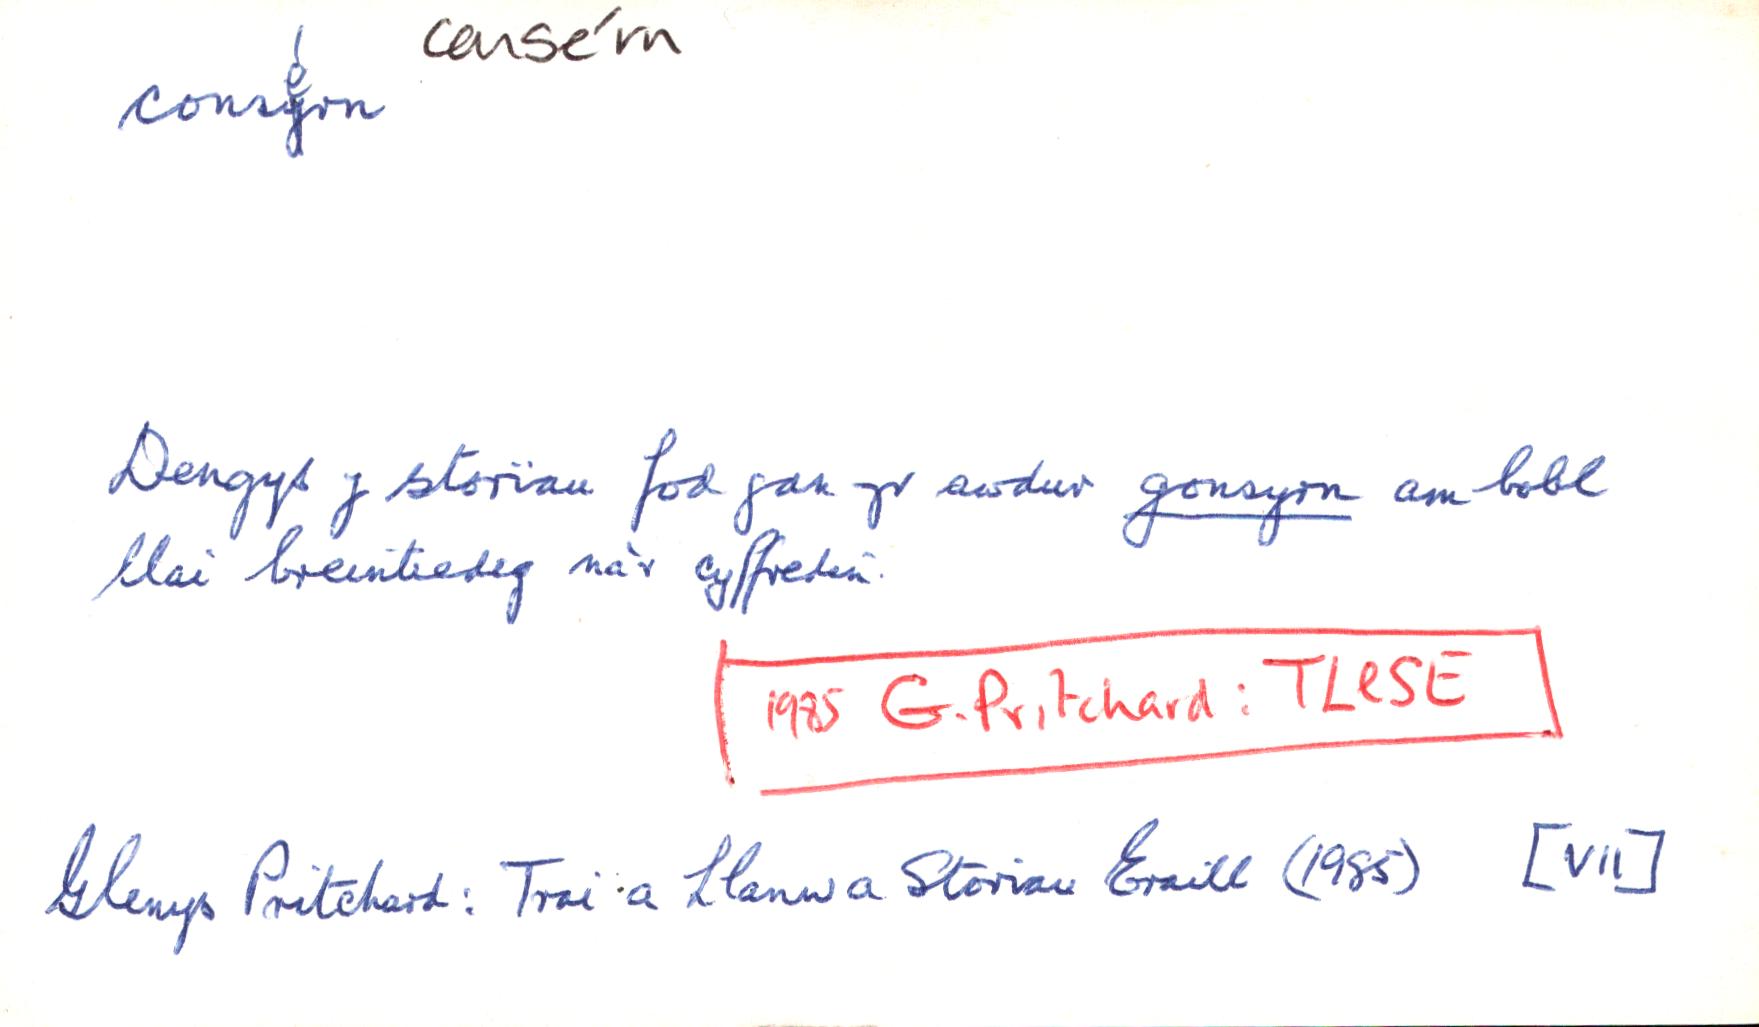 consérn
consyrn
Dengys y storïau fod gan yr awdur gonsyrn am bobl
llai breintiedeg na'r cyffredin.
1985 G. Pritchard: TLlSE
Glenys Pritchard: Trai a Llanw a Storïau Eraill (1985) [VII]